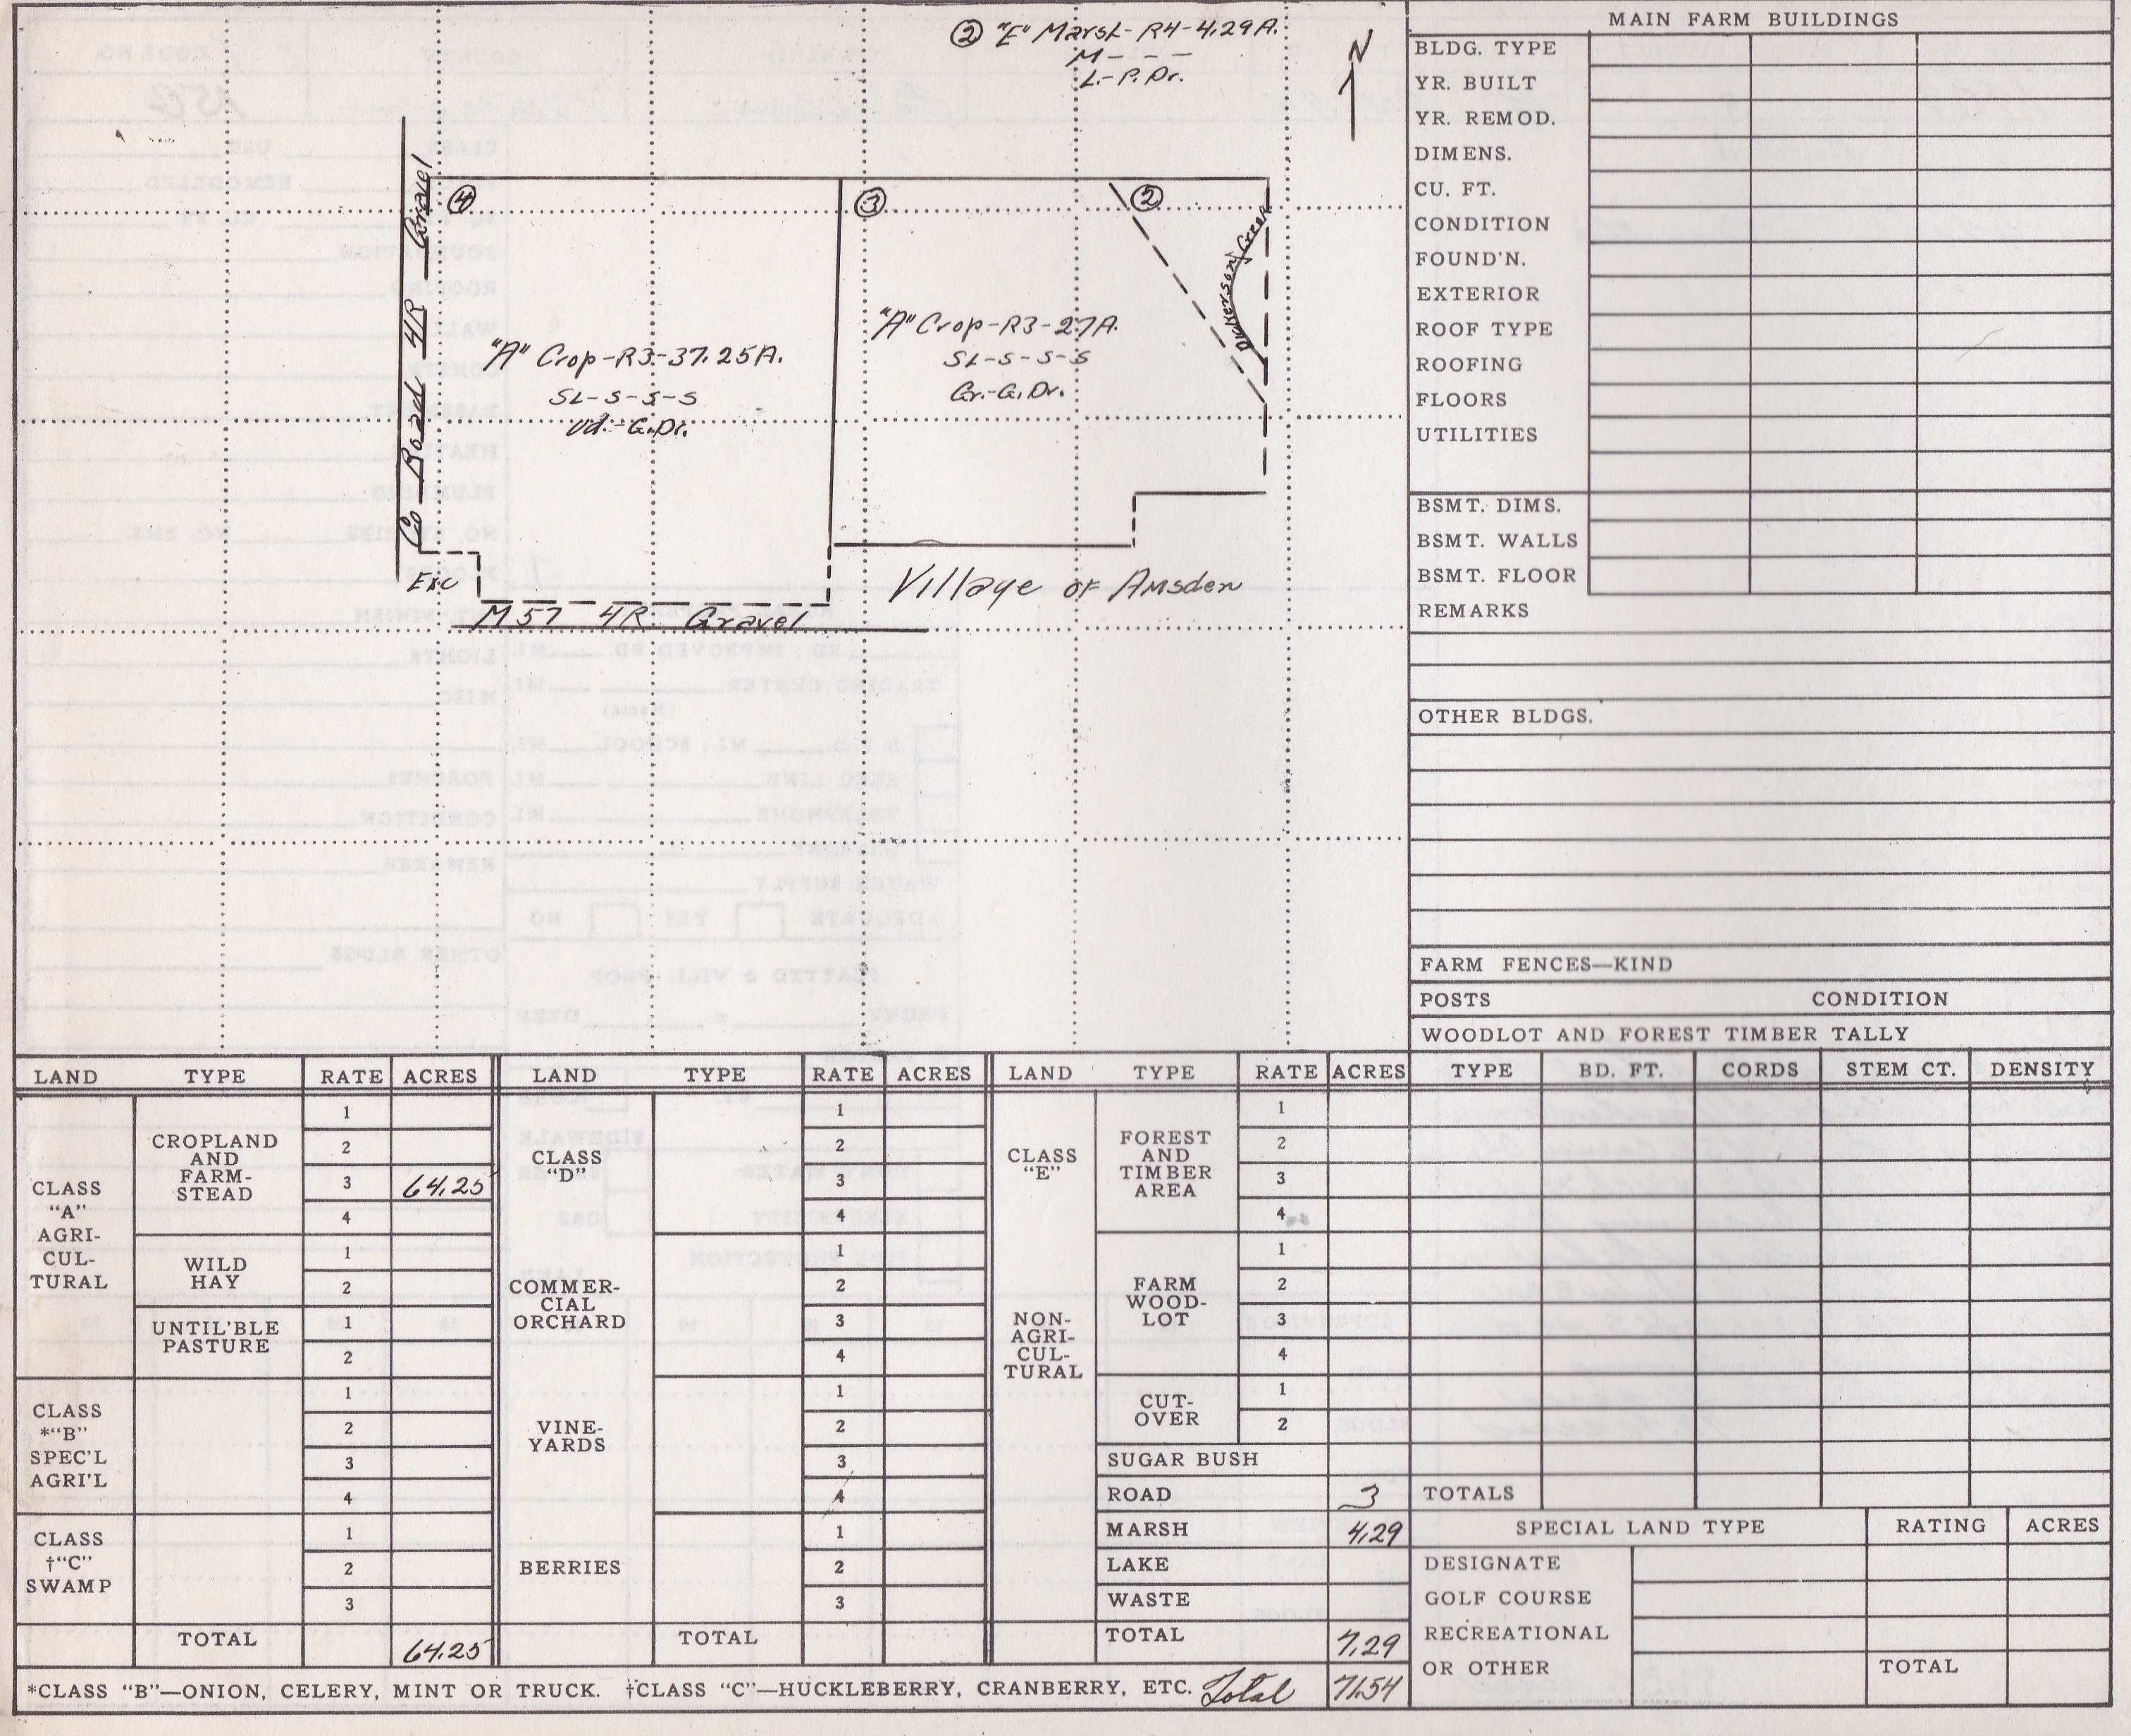 ② "E" Marsh-R4-4.29A.
M - - -
L.-P.Dr.
N
④
③
②
Co Road 4R Gravel
Dickerson Creek
"A" Crop-R3-37.25A.
SL-S-S-S
Ud.-G.Dr.
"A" Crop-R3-27A.
SL-S-S-S
Gr.-G.Dr.
Exc
Village of Amsden
M57 4R Gravel
MAIN FARM BUILDINGS
BLDG. TYPE
YR. BUILT
YR. REMOD.
DIMENS.
CU. FT.
CONDITION
FOUND'N.
EXTERIOR
ROOF TYPE
ROOFING
FLOORS
UTILITIES
BSMT. DIMS.
BSMT. WALLS
BSMT. FLOOR
REMARKS
OTHER BLDGS.
FARM FENCES—KIND
POSTS CONDITION
WOODLOT AND FOREST TIMBER TALLY
TYPE BD. FT. CORDS STEM CT. DENSITY
TOTALS
SPECIAL LAND TYPE RATING ACRES
DESIGNATE
GOLF COURSE
RECREATIONAL
OR OTHER
TOTAL
LAND TYPE RATE ACRES
CLASS
"A"
AGRI-
CUL-
TURAL
CROPLAND
AND
FARM-
STEAD
1
2
3 64.25
4
WILD
HAY
1
2
UNTIL'BLE
PASTURE
1
2
CLASS
*"B"
SPEC'L
AGRI'L
1
2
3
4
CLASS
†"C"
SWAMP
1
2
3
TOTAL 64.25
LAND TYPE RATE ACRES
CLASS
"D"
1
2
3
4
COMMER-
CIAL
ORCHARD
1
2
3
4
VINE-
YARDS
1
2
3
4
BERRIES
1
2
3
TOTAL
LAND TYPE RATE ACRES
CLASS
"E"
NON-
AGRI-
CUL-
TURAL
FOREST
AND
TIMBER
AREA
1
2
3
4
FARM
WOOD-
LOT
1
2
3
4
CUT-
OVER
1
2
SUGAR BUSH
ROAD 3
MARSH 4.29
LAKE
WASTE
TOTAL 7.29
*CLASS "B"—ONION, CELERY, MINT OR TRUCK. †CLASS "C"—HUCKLEBERRY, CRANBERRY, ETC. Total 71.54